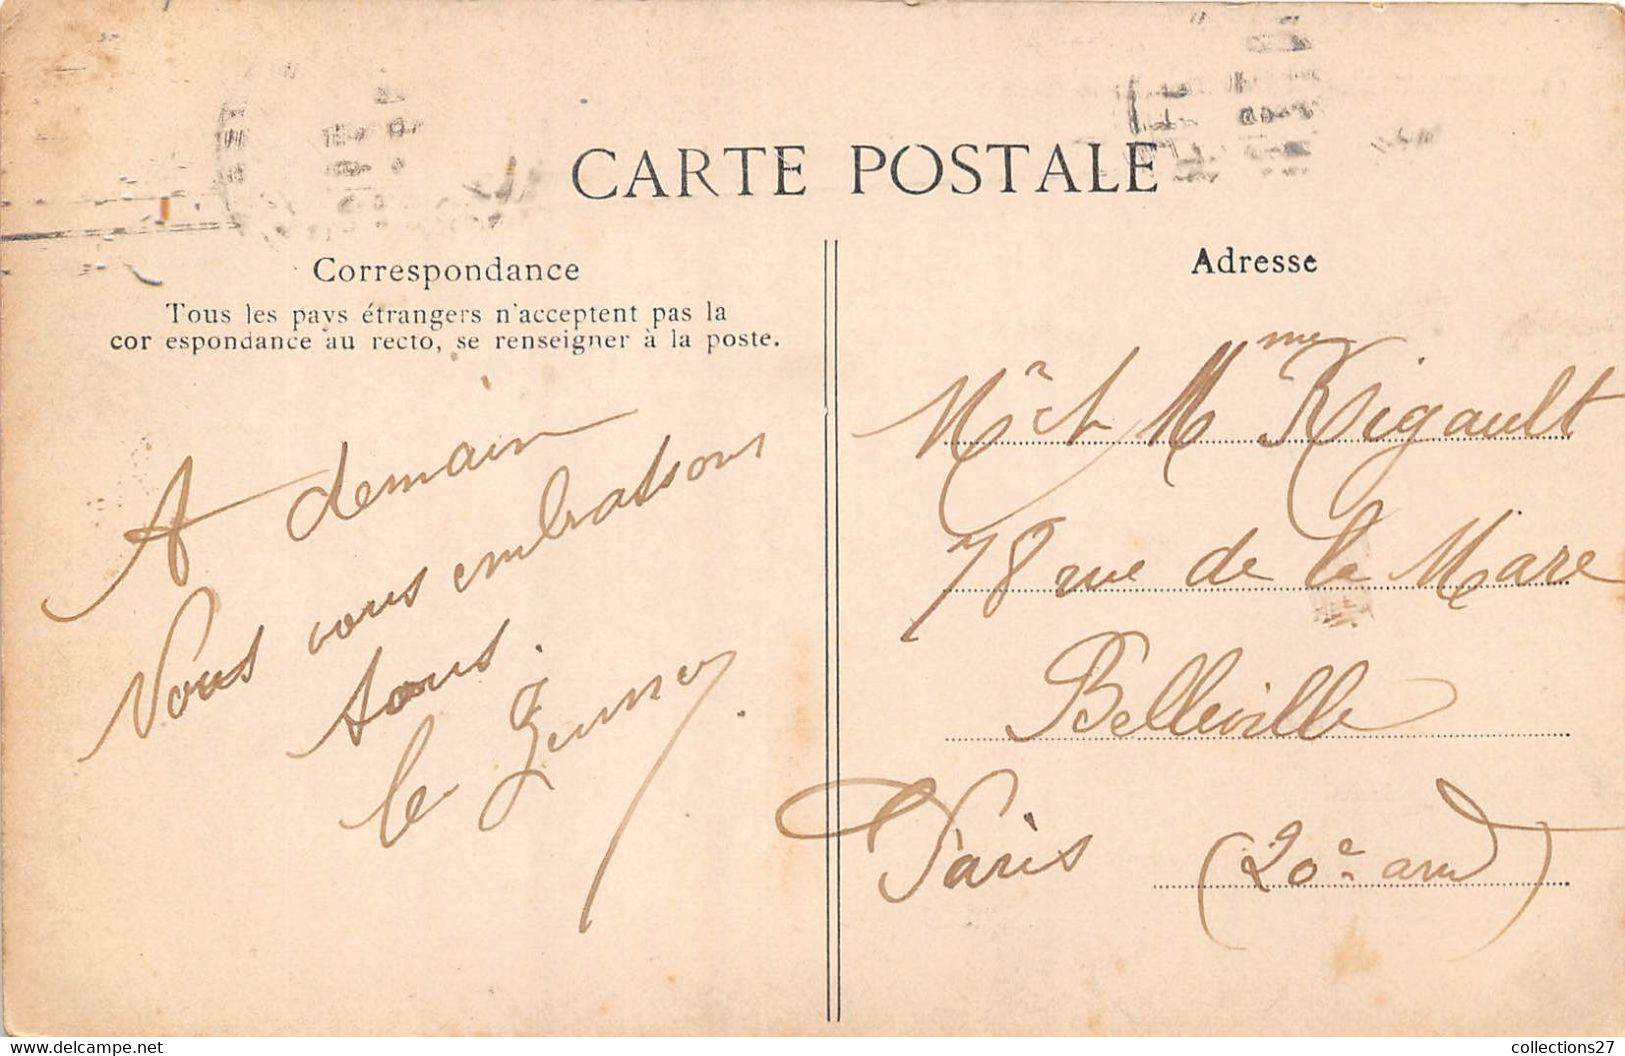 CARTE POSTALE
Correspondance
Tous les pays étrangers n'acceptent pas la
cor espondance au recto, se renseigner à la poste.
A demain
Nous vous embrassons
tous.
le
Adresse
Mr et Mme Rigault
78 rue de la Mare
Belleville
Paris (20e arrd)
delcampe.net
collections27